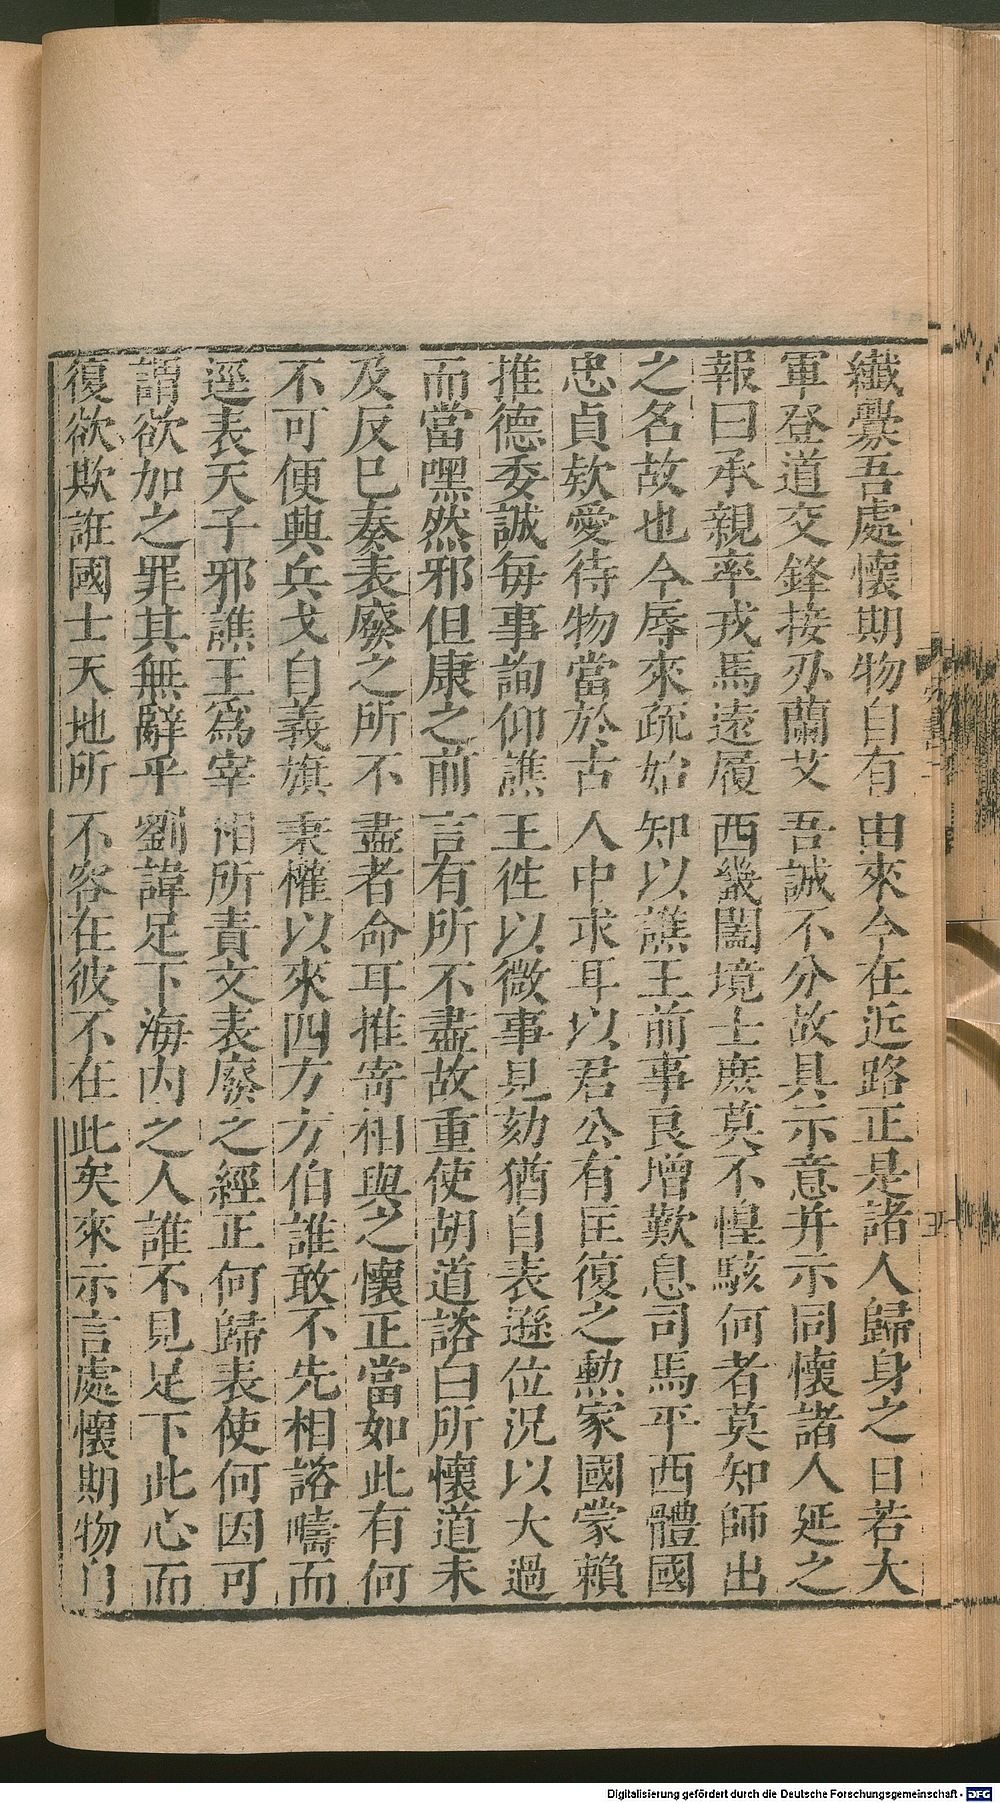 纎釁吾處懷期物自有由來今在近路正是諸人歸身之日若大
軍登道交鋒接刃蘭艾吾誠不分故具示意并示同懷諸人延之
報曰承親率戎馬遠履西畿闔境士庶莫不惶駭何者莫知師出
之名故也今辱來疏始知以譙王前事良增歎息司馬平西體國
忠貞欵愛待物當於古人中求耳以君公有匡復之勳家國蒙賴
推德委誠每事詢仰譙王徃以微事見劾猶自表遜位況以大過
而當嘿然邪但康之前言有所不盡故重使胡道諮白所懷道未
及反巳奏表廢之所不盡者命耳推寄相與之懷正當如此有何
不可便興兵戈自義旗秉權以來四方方伯誰敢不先相諮疇而
逕表天子邪譙王爲宰相所責文表廢之經正何歸表使何因可
謂欲加之罪其無辭乎劉諱足下海内之人誰不見足下此心而
復欲欺誑國士天地所不容在彼不在此矣來示言處懷期物自
Digitalisierung gefördert durch die Deutsche Forschungsgemeinschaft - DFG